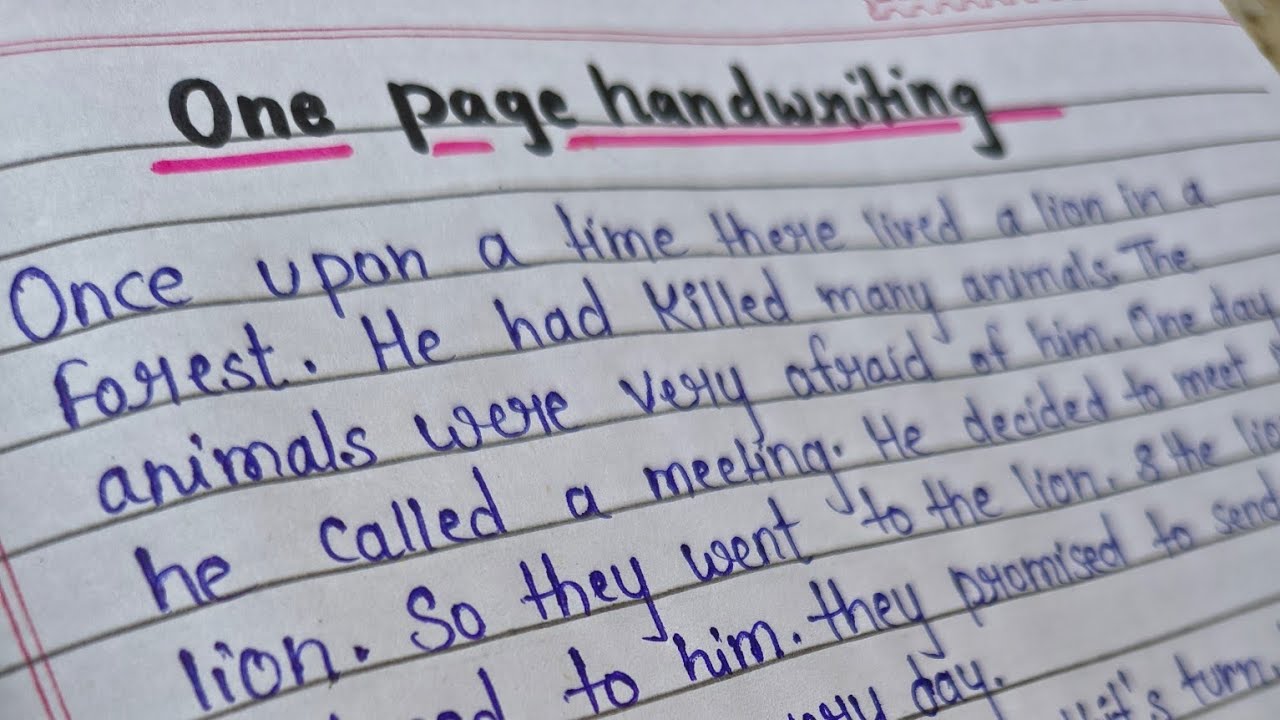 One page handwriting
Once upon a time there lived a lion in a
forest. He had killed many animals. The
animals were very afraid of him. One day
he called a meeting. He decided to meet
lion. So they went to the lion. & the
to him. they promised to send
day.
turn.